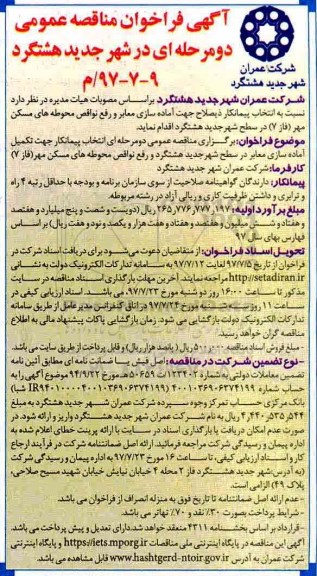 آگهی فراخوان مناقصه عمومی
دومرحله ای در شهر جدید هشتگرد
۹-۷-۹۷/م
شرکت عمران
شهر جدید هشتگرد
شرکت عمران شهر جدید هشتگرد براساس مصوبات هیات مدیره در نظر دارد
نسبت به انتخاب پیمانکار ذیصلاح جهت آماده سازی معابر و رفع نواقص محوطه های مسکن
مهر (فاز ۷) در سطح شهر جدید هشتگرد اقدام نماید.
موضوع فراخوان: برگزاری مناقصه عمومی دومرحله ای انتخاب پیمانکار جهت تکمیل
آماده سازی معابر در سطح شهر جدید هشتگرد و رفع نواقص محوطه های مسکن مهر (فاز ۷)
کارفرما: شرکت عمران شهر جدید هشتگرد
پیمانکار: دارندگان گواهینامه صلاحیت از سوی سازمان برنامه و بودجه با حداقل رتبه ۴ راه
و ترابری و داشتن ظرفیت کاری و ریالی آزاد در رشته مربوطه.
مبلغ برآورد اولیه: ۲۶۵,۷۷۶,۷۷۷,۱۹۷ ریال (دویست و شصت و پنج میلیارد و هفتصد
و هفتاد و شش میلیون و هفتصد و هفتاد و هفت هزار و یکصد و نود و هفت ریال) بر اساس
فهارس بهای سال ۹۷
تحویل اسناد فراخوان: از متقاضیان دعوت می‌شود برای دریافت اسناد شرکت در
فراخوان از تاریخ ۹۷/۷/۵ لغایت ۹۷/۷/۱۲ به سامانه تدارکات الکترونیک دولت به نشانی
http://setadiran.ir مراجعه نمایند. آخرین مهلت بارگذاری اسناد مناقصه در سایت
مذکور تا ساعت ۱۶:۰۰ روز دو شنبه مورخ ۹۷/۷/۲۳ می باشد. اسناد ارزیابی کیفی در
ساعت ۱۱ روز سه شنبه مورخ ۹۷/۷/۲۴ در اتاق کنفرانس مدیرعامل از طریق سامانه
تدارکات الکترونیک دولت بازگشایی می شود. زمان بازگشایی پاکات پیشنهاد مالی به اطلاع
مناقصه گران خواهد رسید.
مبلغ فروش اسناد مناقصه ۵۰۰,۰۰۰ ریال (پانصد هزار ریال) و قابل پرداخت از طریق سایت می باشد.
- نوع تضمین شرکت در مناقصه: اصل فیش یا ضمانت نامه ای مطابق آئین نامه
تضمین معاملات دولتی به شماره ۱۲۳۴۰۲/ت۵۰۶۵۹ه مورخ ۹۴/۹/۲۲ به
حساب شماره
بانک مرکزی حساب تمرکز وجوه سپرده شرکت عمران شهر جدید هشتگرد به مبلغ
ریال به نام شرکت عمران شهر جدید هشتگرد واریز و ارائه شود. در
صورت عدم امکان دریافت یا بارگذاری اسناد در سایت با ارائه پرینت خطای اعلام شده به
اداره پیمان و رسیدگی شرکت مراجعه فرمائید. ارائه اصل ضمانتنامه شرکت در فرآیند ارجاع
کار و اسناد ارزیابی کیفی، تا ساعت ۱۶ مورخ ۹۷/۷/۲۳ به اداره پیمان و رسیدگی شرکت
(به آدرس: شهر جدید هشتگرد فاز ۲ محله ۴ خیابان نیایش خیابان شهید مسیح صلاحی،
پلاک ۴۹) الزامی است.
- عدم ارائه اصل ضمانتنامه تا تاریخ فوق به منزله انصراف از فراخوان می باشد.
- شرایط پرداخت بصورت ۳۰٪ نقد و ۷۰٪ تهاتر می باشد.
- قرارداد بر اساس بخشنامه ۴۳۱۱ منعقد خواهد شد. دارای تعدیل و پیش پرداخت می باشد.
آگهی این مناقصه در پایگاه اینترنتی ملی مناقصات https://iets.mporg.ir و پایگاه اینترنتی
شرکت عمران به آدرس www.hashtgerd-ntoir.gov.ir قابل مشاهده می باشد.